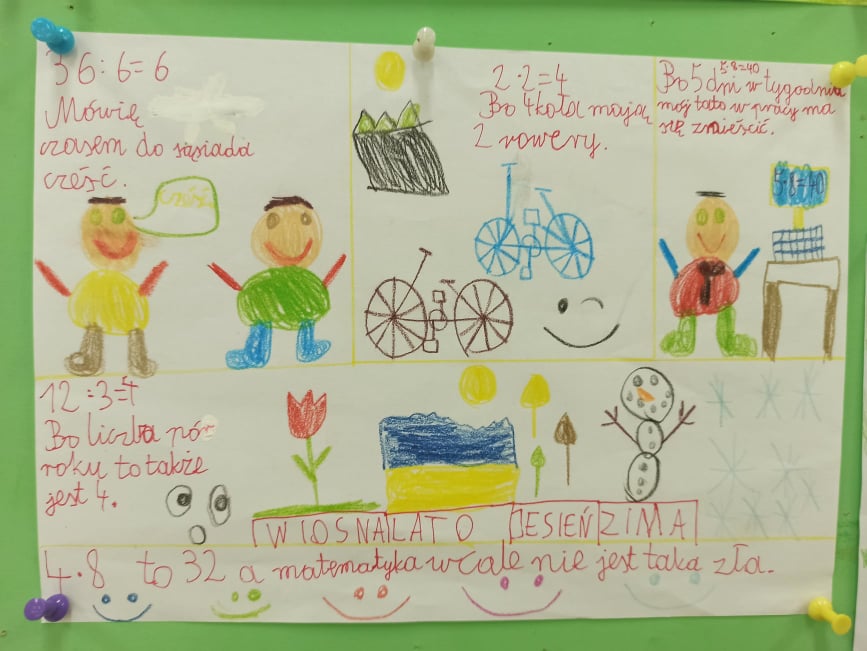 36:6=6
Mówię
czasem do sąsiada
cześć.
cześć
2·2=4
Bo 4 koła mają
2 rowery.
5·8=40
Bo 5 dni w tygodniu
mój tato w pracy ma
się zmieścić.
5·8=40
12:3=4
Bo liczba pór
roku to także
jest 4.
WIOSNA LATO JESIEŃ ZIMA
4·8 to 32 a matematyka wcale nie jest taka zła.